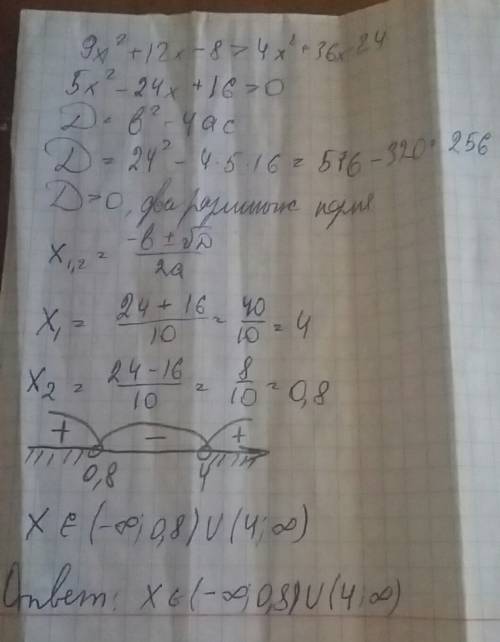 9x² + 12x - 8 > 4x² + 36x 24
5x² - 24x + 16 > 0
D = b² - 4ac
D = 24² - 4·5·16 = 576 - 320 = 256
D > 0, два различных корня
x₁,₂ = (-b ± √D)/2a
x₁ = (24 + 16)/10 = 40/10 = 4
x₂ = (24 - 16)/10 = 8/10 = 0,8
+ - +
0,8 4
x ∈ (-∞; 0,8) ∪ (4; ∞)
Ответ: x ∈ (-∞; 0,8) ∪ (4; ∞)